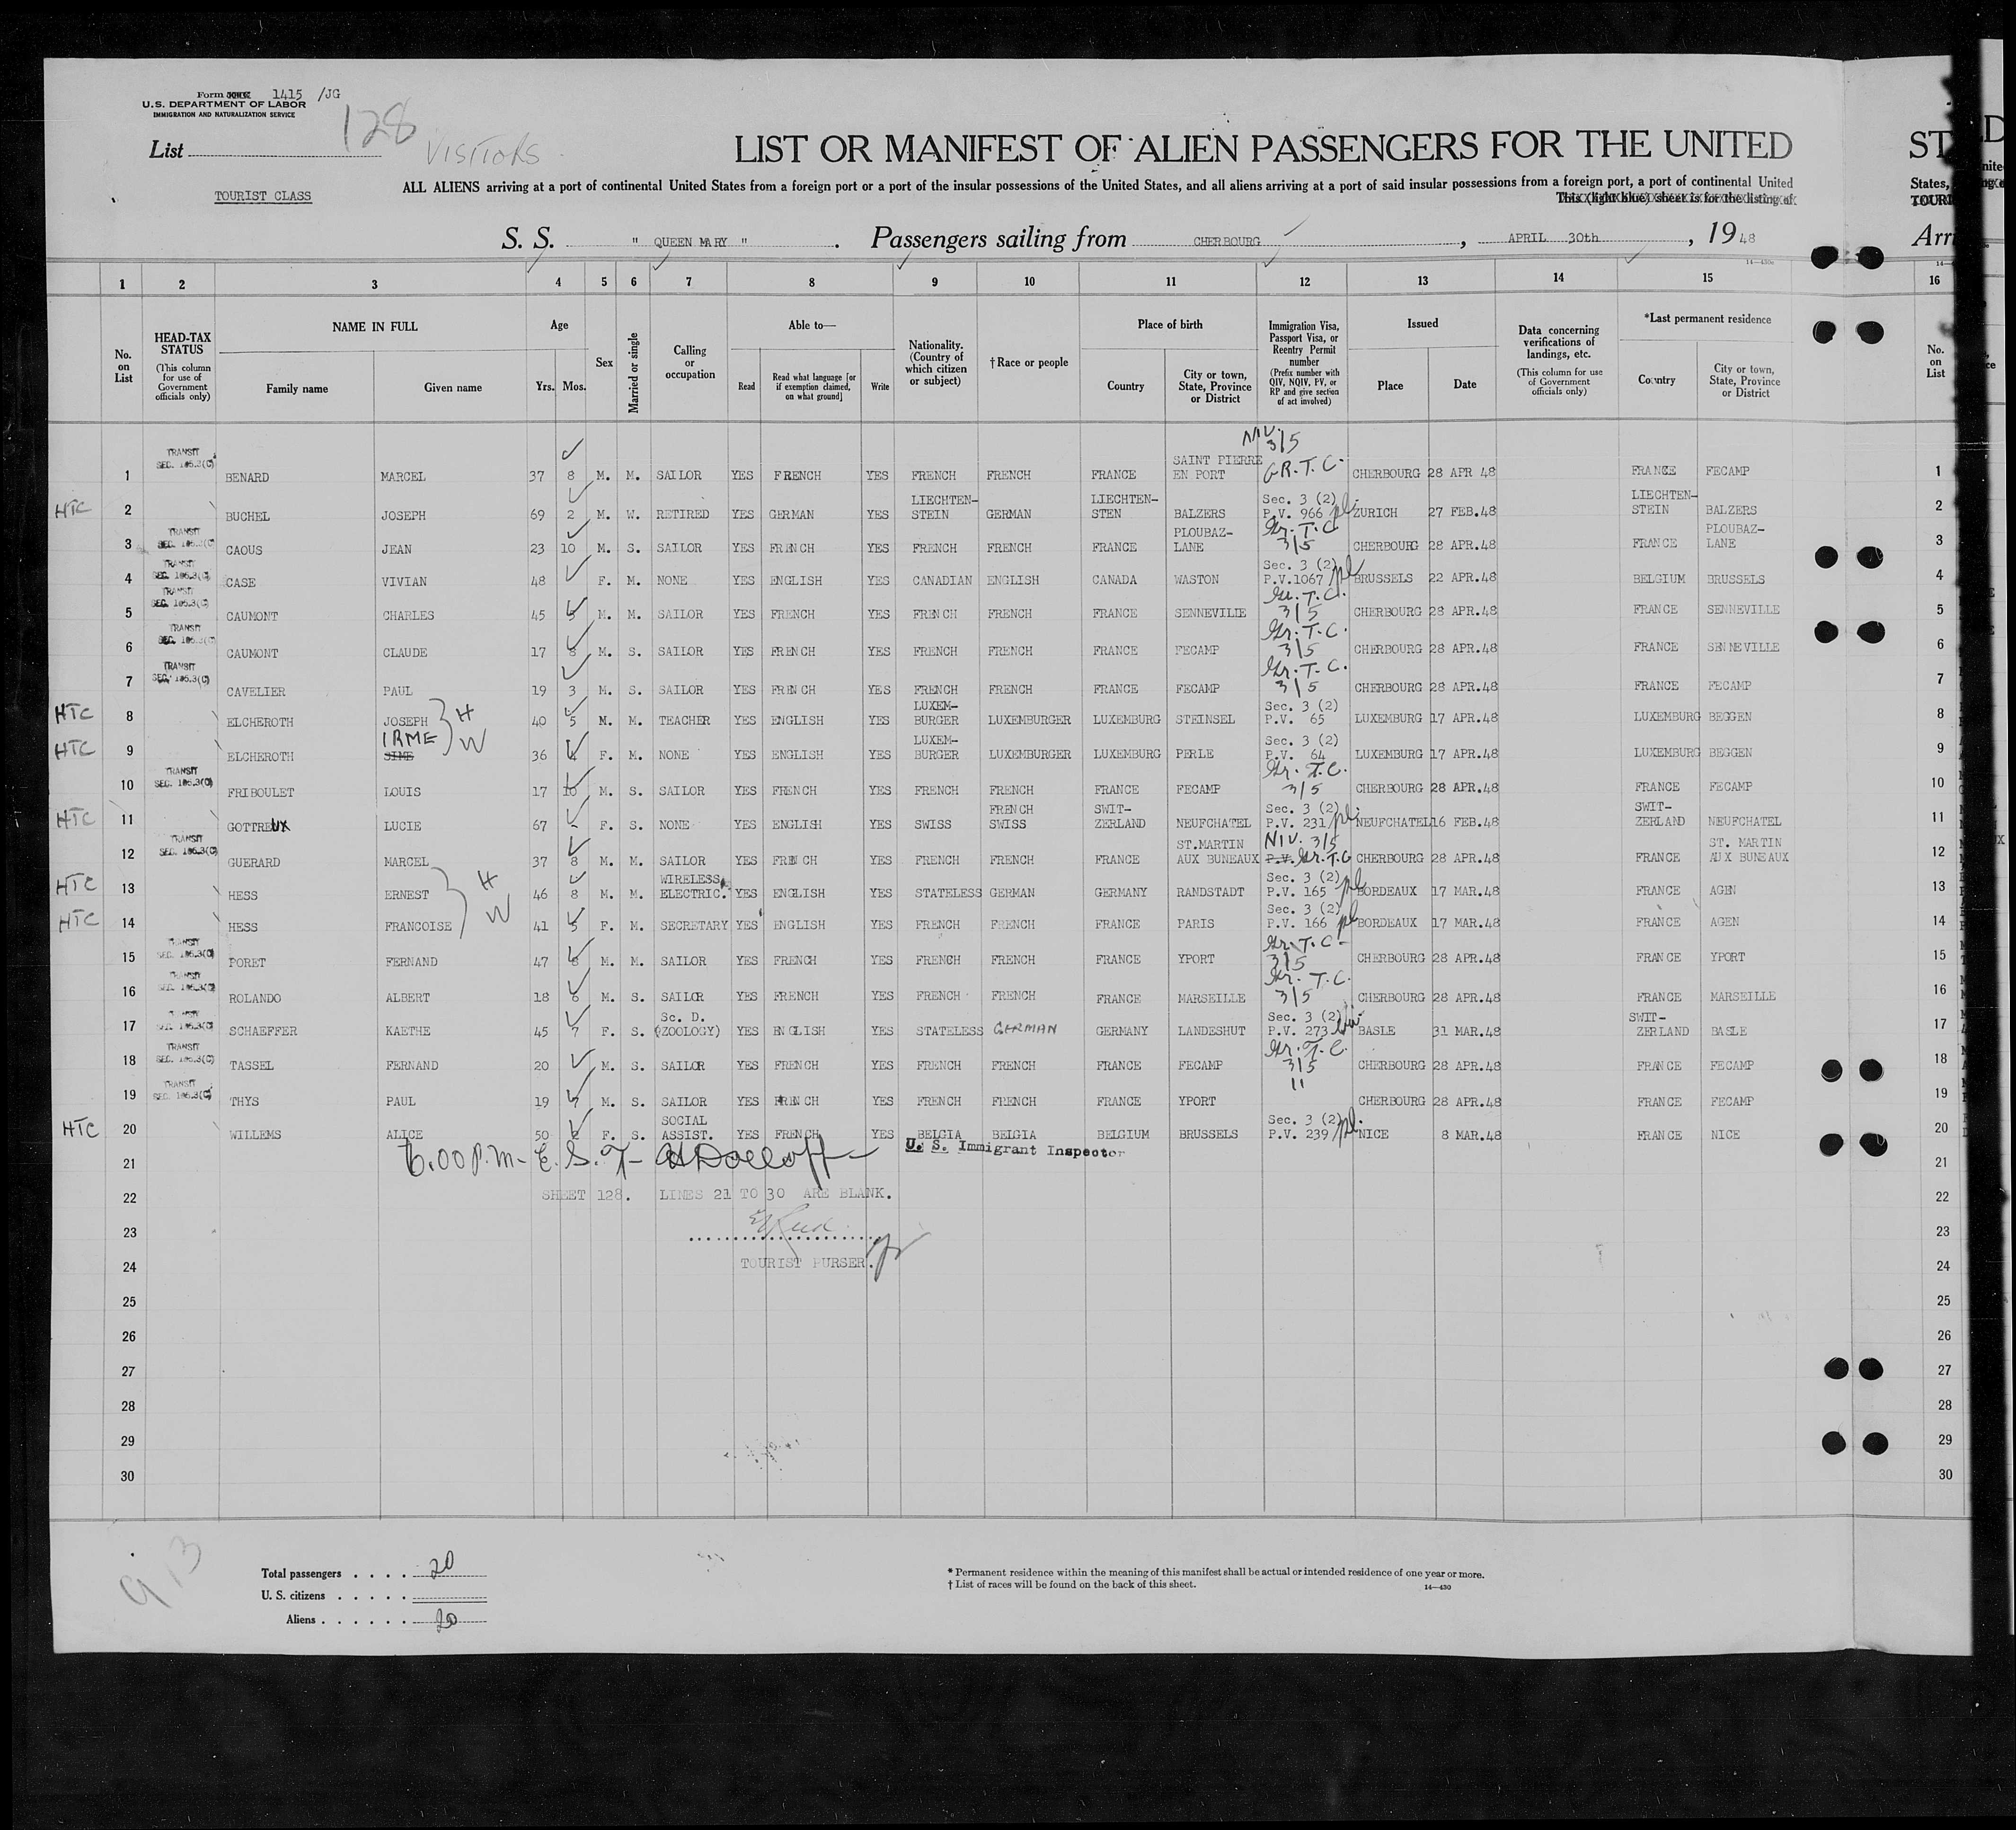 Form 1415 /JG
U.S. DEPARTMENT OF LABOR
IMMIGRATION AND NATURALIZATION SERVICE
List 128 VISITORS
LIST OR MANIFEST OF ALIEN PASSENGERS FOR THE UNITED
TOURIST CLASS
ALL ALIENS arriving at a port of continental United States from a foreign port or a port of the insular possessions of the United States, and all aliens arriving at a port of said insular possessions from a foreign port, a port of continental United States,
This (light blue) sheet is for the listing of
S. S. " QUEEN MARY " . Passengers sailing from CHERBOURG , APRIL 30th , 19 48
1 2 3 4 5 6 7 8 9 10 11 12 13 14 15 16
No. on List
HEAD-TAX STATUS (This column for use of Government officials only)
NAME IN FULL Family name Given name
Age Yrs. Mos.
Sex
Married or single
Calling or occupation
Able to— Read Read what language [or if exemption claimed, on what ground] Write
Nationality. (Country of which citizen or subject)
†Race or people
Place of birth Country City or town, State, Province or District
Immigration Visa, Passport Visa, or Reentry Permit number (Prefix number with QIV, NQIV, PV, or RP and give section of act involved)
Issued Place Date
Data concerning verifications of landings, etc. (This column for use of Government officials only)
*Last permanent residence Country City or town, State, Province or District
No. on List
1 TRANSIT SEC. 105.3(C) BENARD MARCEL 37 8 M. M. SAILOR YES FRENCH YES FRENCH FRENCH FRANCE SAINT PIERRE EN PORT NIV. 3/5 GR.T.C. CHERBOURG 28 APR 48 FRANCE FECAMP 1
HTC 2 BUCHEL JOSEPH 69 2 M. W. RETIRED YES GERMAN YES LIECHTEN-STEIN GERMAN LIECHTEN-STEN BALZERS Sec. 3 (2) P.V. 966 ZURICH 27 FEB.48 LIECHTEN-STEIN BALZERS 2
3 TRANSIT SEC. 105.3(C) CAOUS JEAN 23 10 M. S. SAILOR YES FRENCH YES FRENCH FRENCH FRANCE PLOUBAZ-LANE Gr. T.C. 3/5 CHERBOURG 28 APR.48 FRANCE PLOUBAZ-LANE 3
4 TRANSIT SEC. 105.3(C) CASE VIVIAN 48 F. M. NONE YES ENGLISH YES CANADIAN ENGLISH CANADA WASTON Sec. 3 (2) P.V.1067 BRUSSELS 22 APR.48 BELGIUM BRUSSELS 4
5 TRANSIT SEC. 105.3(C) CAUMONT CHARLES 45 5 M. M. SAILOR YES FRENCH YES FRENCH FRENCH FRANCE SENNEVILLE Gr. T.C. 3/5 CHERBOURG 28 APR.48 FRANCE SENNEVILLE 5
6 TRANSIT SEC. 105.3(C) CAUMONT CLAUDE 17 8 M. S. SAILOR YES FRENCH YES FRENCH FRENCH FRANCE FECAMP Gr. T.C. 3/5 CHERBOURG 28 APR.48 FRANCE SENNEVILLE 6
7 TRANSIT SEC. 105.3(C) CAVELIER PAUL 19 3 M. S. SAILOR YES FRENCH YES FRENCH FRENCH FRANCE FECAMP Gr. T.C. 3/5 CHERBOURG 28 APR.48 FRANCE FECAMP 7
HTC 8 ELCHEROTH JOSEPH H 40 5 M. M. TEACHER YES ENGLISH YES LUXEM-BURGER LUXEMBURGER LUXEMBURG STEINSEL Sec. 3 (2) P.V. 65 LUXEMBURG 17 APR.48 LUXEMBURG BEGGEN 8
HTC 9 ELCHEROTH IRME W 36 4 F. M. NONE YES ENGLISH YES LUXEM-BURGER LUXEMBURGER LUXEMBURG PERLE Sec. 3 (2) P.V. 64 LUXEMBURG 17 APR.48 LUXEMBURG BEGGEN 9
10 TRANSIT SEC. 105.3(C) FRIBOULET LOUIS 17 10 M. S. SAILOR YES FRENCH YES FRENCH FRENCH FRANCE FECAMP Gr. T.C. 3/5 CHERBOURG 28 APR.48 FRANCE FECAMP 10
HTC 11 GOTTREUX LUCIE 67 - F. S. NONE YES ENGLISH YES SWISS FRENCH SWISS SWIT-ZERLAND NEUFCHATEL Sec. 3 (2) P.V. 231 NEUFCHATEL 16 FEB.48 SWIT-ZERLAND NEUFCHATEL 11
12 TRANSIT SEC. 105.3(C) GUERARD MARCEL 37 8 M. M. SAILOR YES FRENCH YES FRENCH FRENCH FRANCE ST.MARTIN AUX BUNEAUX NIV. 3/5 P.V. Gr.T.C CHERBOURG 28 APR.48 FRANCE ST. MARTIN AUX BUNEAUX 12
HTC 13 HESS ERNEST H 46 8 M. M. WIRELESS ELECTRIC. YES ENGLISH YES STATELESS GERMAN GERMANY RANDSTADT Sec. 3 (2) P.V. 165 BORDEAUX 17 MAR.48 FRANCE AGEN 13
HTC 14 HESS FRANCOISE W 41 5 F. M. SECRETARY YES ENGLISH YES FRENCH FRENCH FRANCE PARIS Sec. 3 (2) P.V. 166 BORDEAUX 17 MAR.48 FRANCE AGEN 14
15 TRANSIT SEC. 105.3(C) PORET FERNAND 47 8 M. M. SAILOR YES FRENCH YES FRENCH FRENCH FRANCE YPORT Gr. T.C. 3/5 CHERBOURG 28 APR.48 FRANCE YPORT 15
16 TRANSIT SEC. 105.3(C) ROLANDO ALBERT 18 6 M. S. SAILOR YES FRENCH YES FRENCH FRENCH FRANCE MARSEILLE Gr. T.C. 3/5 CHERBOURG 28 APR.48 FRANCE MARSEILLE 16
17 TRANSIT SEC. 105.3(C) SCHAEFFER KAETHE 45 7 F. S. Sc. D. (ZOOLOGY) YES ENGLISH YES STATELESS GERMAN GERMANY LANDESHUT Sec. 3 (2) P.V. 273 BASLE 31 MAR.48 SWIT-ZERLAND BASLE 17
18 TRANSIT SEC. 105.3(C) TASSEL FERNAND 20 M. S. SAILOR YES FRENCH YES FRENCH FRENCH FRANCE FECAMP Gr. T.C. 3/5 CHERBOURG 28 APR.48 FRANCE FECAMP 18
19 TRANSIT SEC. 105.3(C) THYS PAUL 19 7 M. S. SAILOR YES FRENCH YES FRENCH FRENCH FRANCE YPORT " CHERBOURG 28 APR.48 FRANCE FECAMP 19
HTC 20 WILLEMS ALICE 50 2 F. S. SOCIAL ASSIST. YES FRENCH YES BELGIA BELGIA BELGIUM BRUSSELS Sec. 3 (2) P.V. 239 NICE 8 MAR.48 FRANCE NICE 20
21 6.00 P.M- E.S.T- U. S. Immigrant Inspector 21
22 SHEET 128. LINES 21 TO 30 ARE BLANK. 22
23 23
24 TOURIST PURSER. 24
25 25
26 26
27 27
28 28
29 29
30 30
913
Total passengers . . . . 20
U. S. citizens . . . . .
Aliens . . . . . . 20
* Permanent residence within the meaning of this manifest shall be actual or intended residence of one year or more.
† List of races will be found on the back of this sheet. 14—430